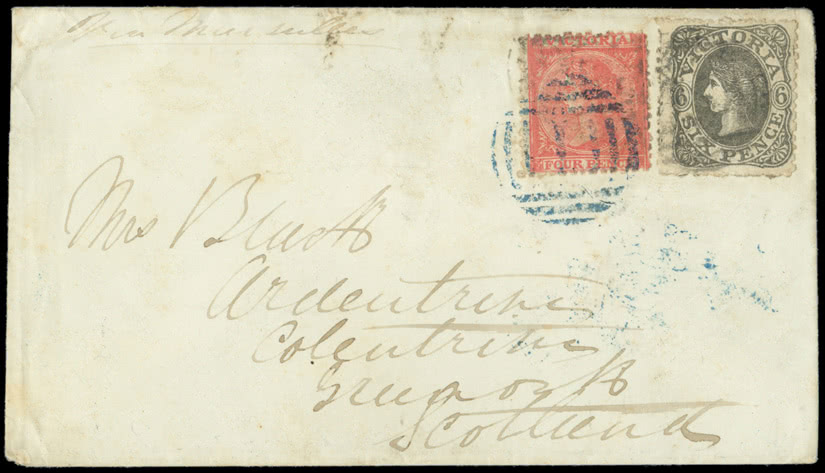 Via Marseilles
VICTORIA
FOUR PENCE
VICTORIA
6 6
SIX PENCE
Mrs Black
Ardentrine
Colentrine
Greenock
Scotland